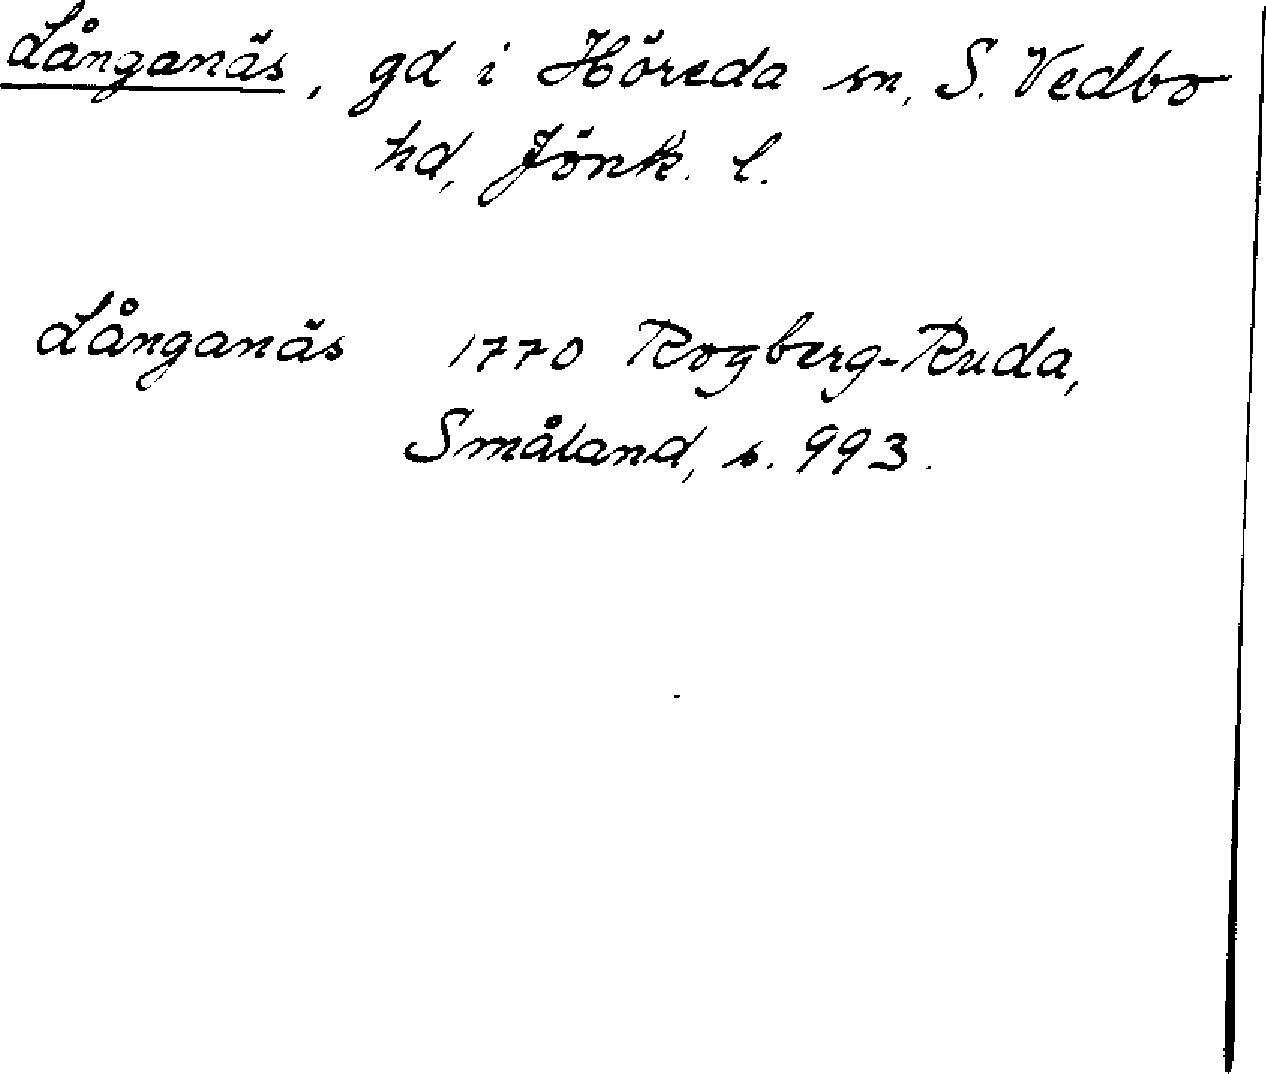 Långanäs, gd i Höreda sn, S. Vedbo
hd, Jönk. l.
Långanäs 1770 Rogberg-Ruda,
Småland, s. 993.